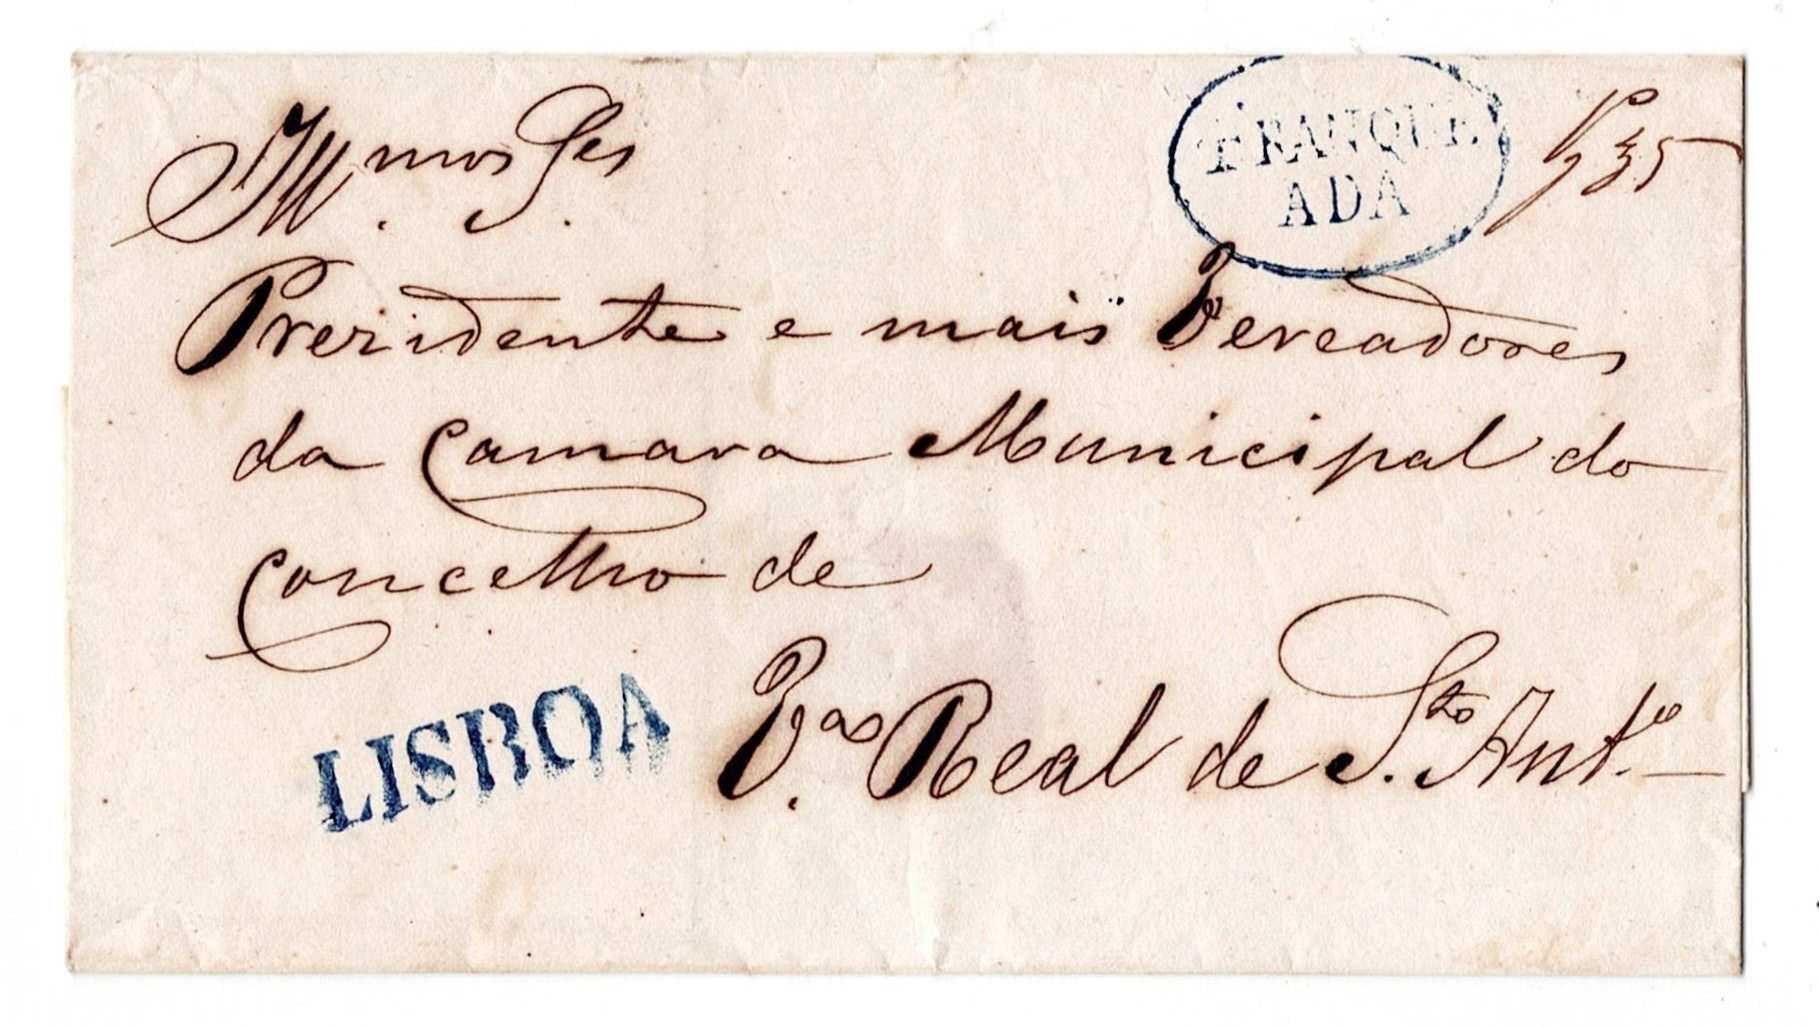 Ill.mos Sres
FRANQUE
ADA
P 35
Prezidente e mais Vereadores
da Camara Municipal do
Concelho de
V.a Real de S.to Ant.o
LISBOA